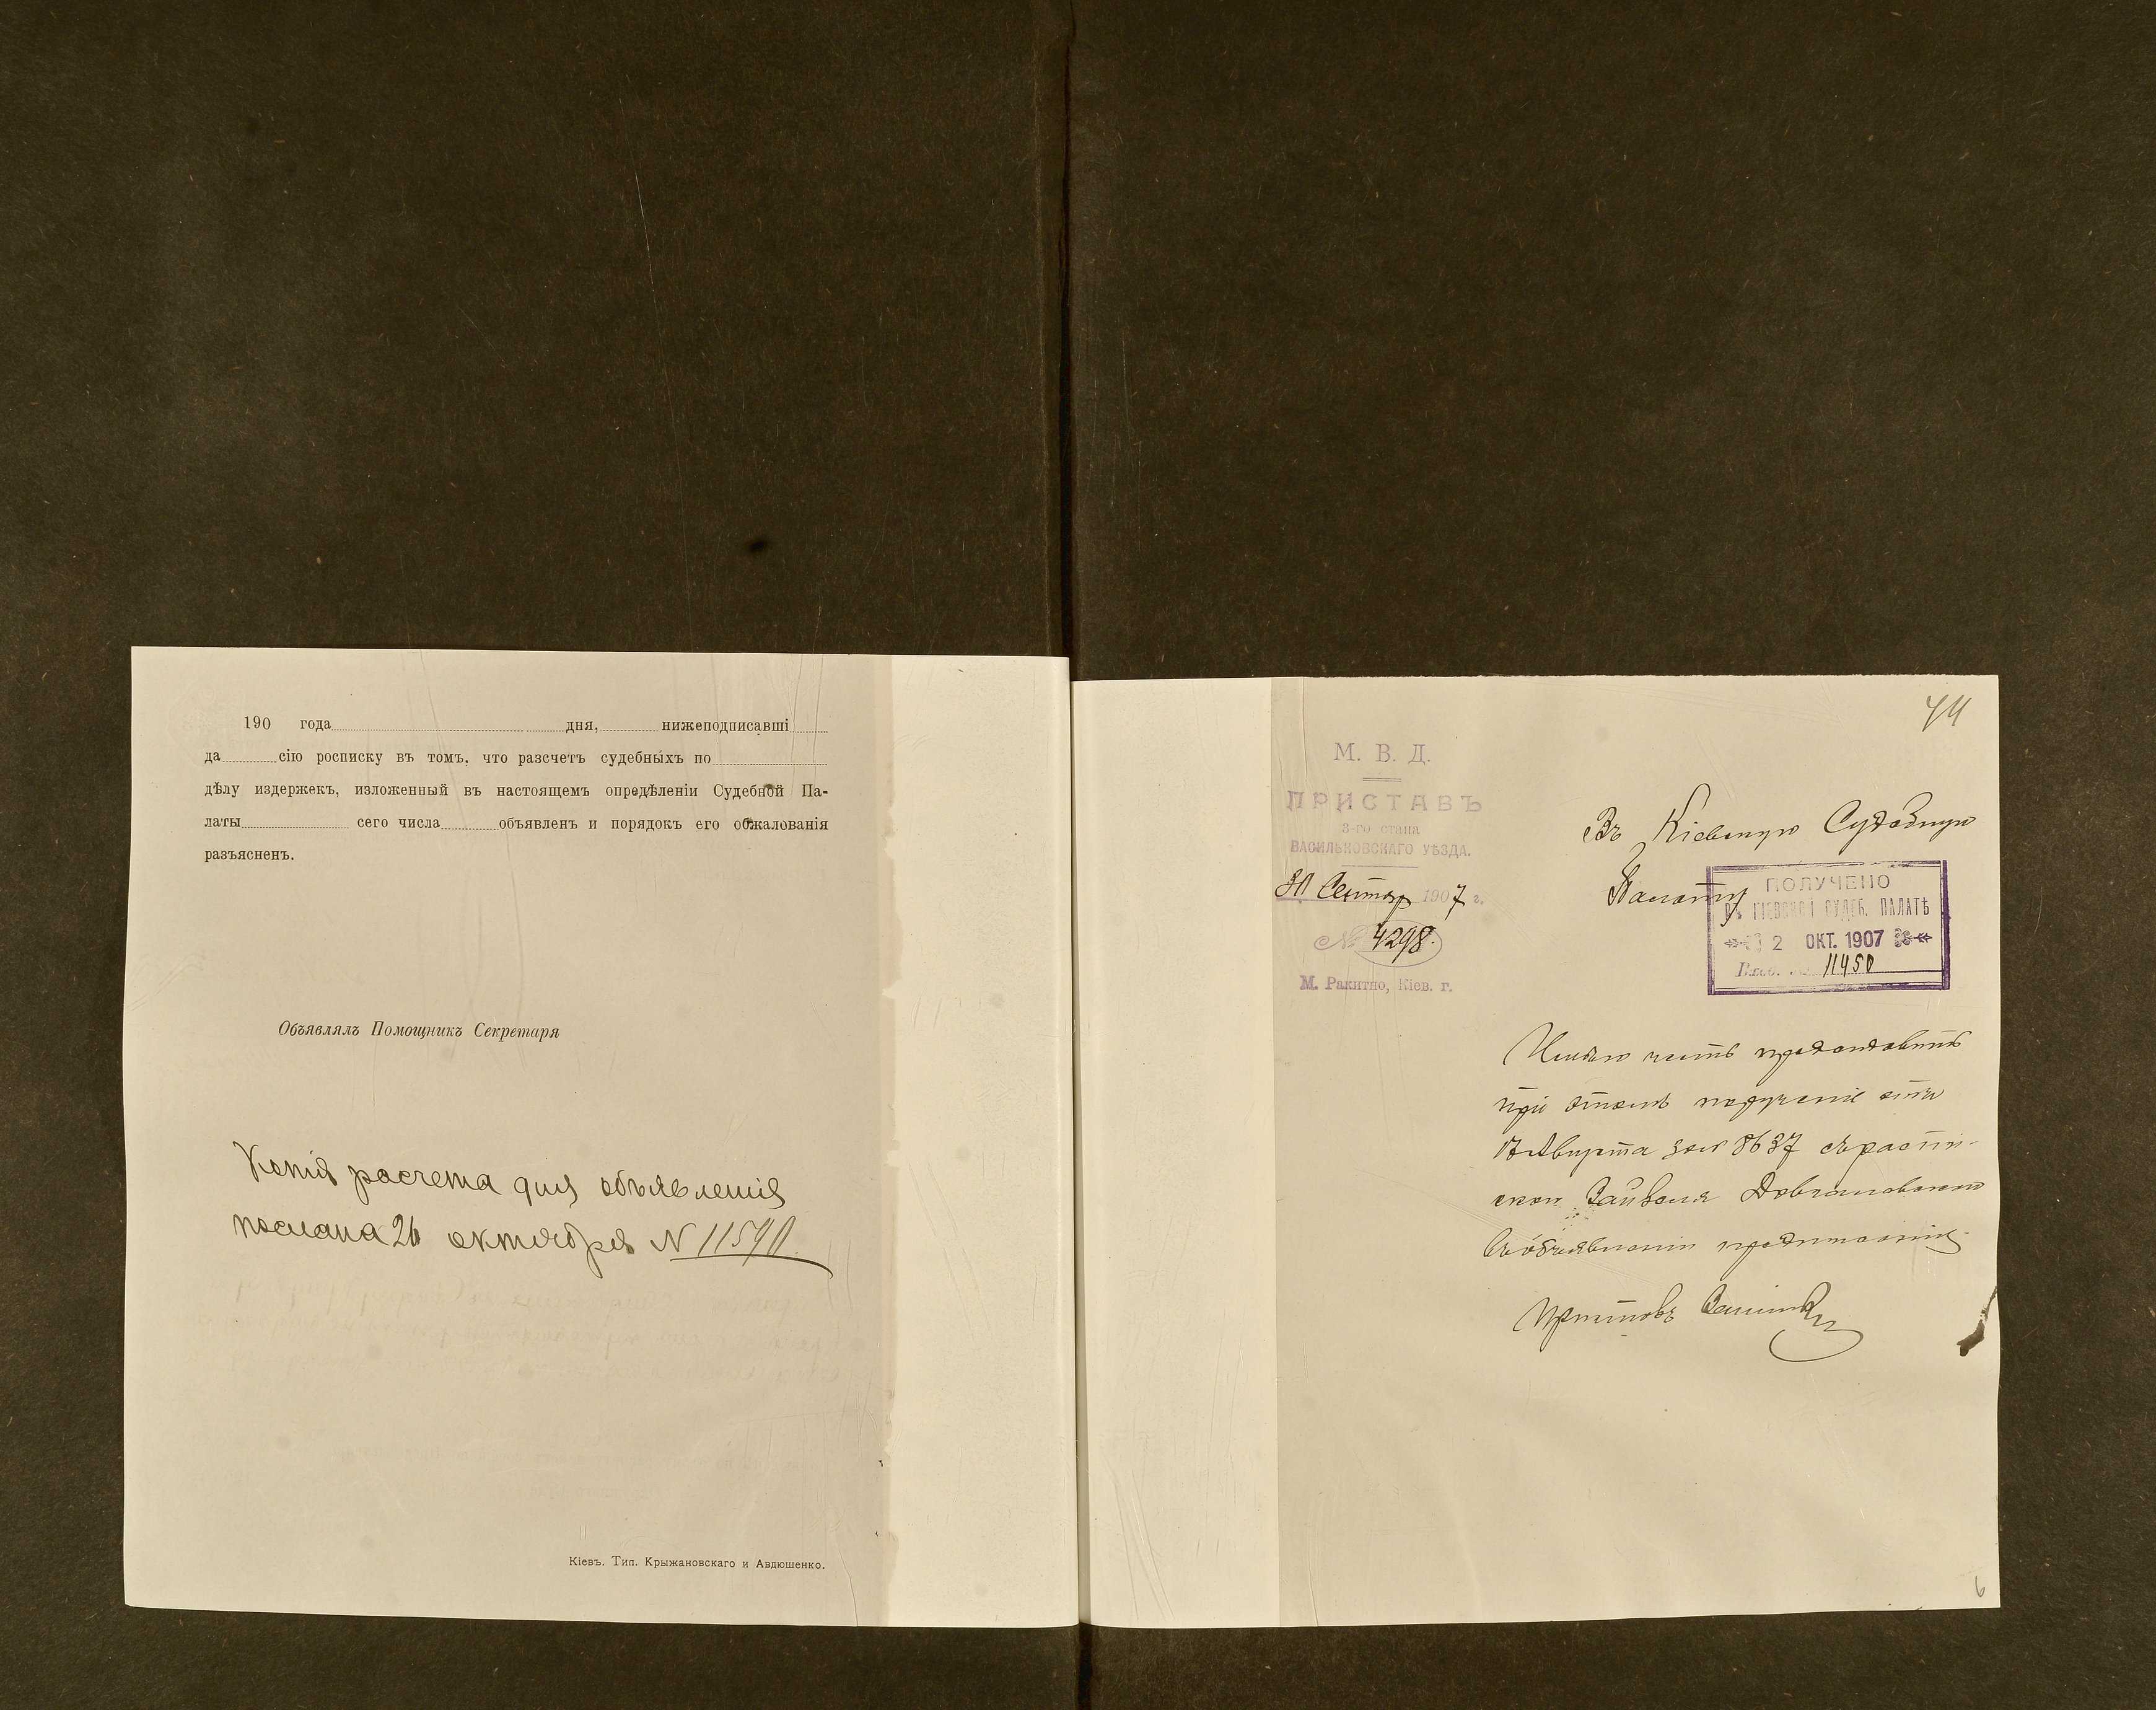 190 года дня, нижеподписавші
да сію росписку въ томъ. что разсчетъ судебныхъ по
дѣлу издержекъ, изложенный въ настоящемъ опредѣленіи Судебной Па-
латы сего числа объявленъ и порядокъ его обжалованія
разъясненъ.
Объявлялъ Помощникъ Секретаря
Копія расчета для объявленія
послана 26 октября N
Кіевъ. Тип. Крыжановскаго и Авдюшенко.
44
М. В. Д.
ПРИСТАВЪ
3-го стана
ВАСИЛЬКОВСКАГО УѢЗДА.
30 Сентяр 1907 г.
№ 4298.
М. Ракитно, Кіев. г.
Въ Кіевскую Судебную
Палату
ПОЛУЧЕНО
въ КІЕВСКОЙ СУДЕБ. ПАЛАТѢ
2 ОКТ. 1907
Вход. № 11450
Имѣю честь представить
при этомъ порученіе отъ
Августа за № 8637 съ распи-
ской
въ объявленіи
Приставъ
6